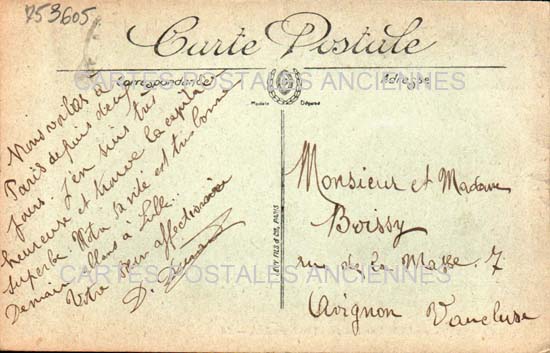 D53605
Carte Postale
Correspondance
Adresse
Modèle Déposé
CARTES POSTALES ANCIENNES
Nous voilà à
Paris depuis deux
jours. J'en suis très
heureuse et trouve la capitale
superbe. Votre santé est très bonne
Demain allons à Lille.
Votre affectionnée
D.
LEVY FILS & Cie, PARIS
Monsieur et Madame
Boissy
rue de la Masse. 7
Avignon Vaucluse
CARTES POSTALES ANCIENNES